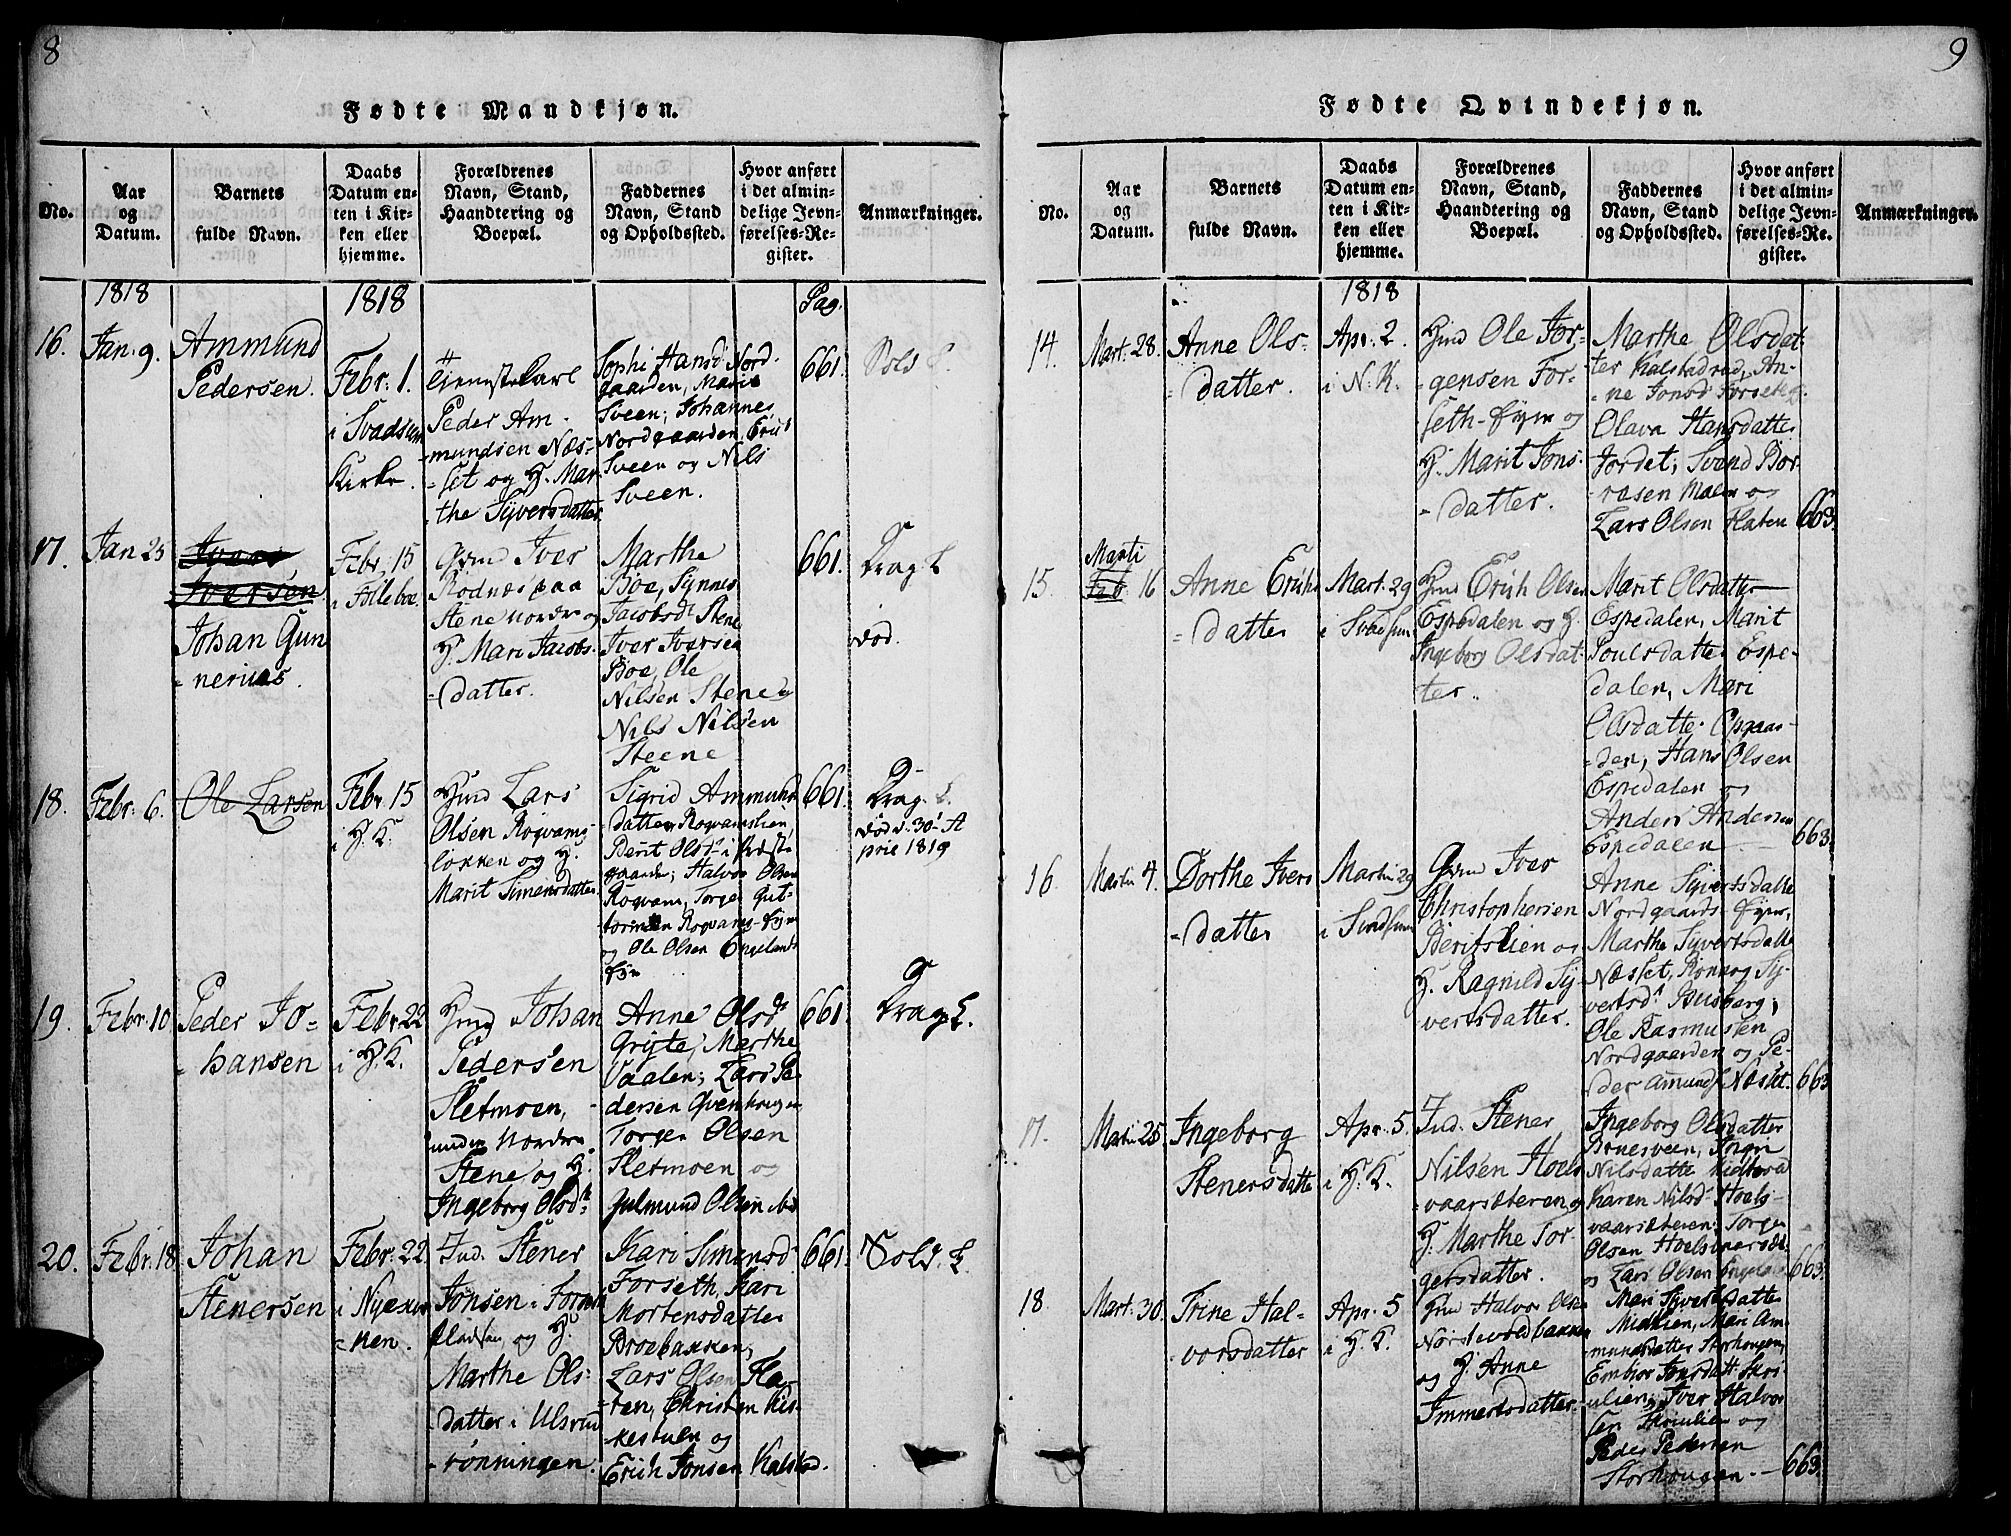 8
Fødte Mandkjøn.
No.
Aar
og
Datum.
Barnets
fulde Navn.
Daabs
Datum en-
ten i Kir-
ken eller
hjemme.
Forældrenes
Navn, Stand,
Haandtering og
Boepæl.
Faddernes
Navn, Stand
og Opholdssted.
Hvor anført
i det almin-
delige Jevn-
førelses-Re-
gister.
Anmærkninger.
1818
1818
Pag.
16.
Jan. 9.
Ammund
Pedersen.
Febr. 1.
i Svadsum
Kirke.
Tjenestekarl
Peder Am-
mundsen Næs-
set og H. Mar-
the Syversdatter
Sophi Hansd. Nord-
gaarden, Marie
Sveen; Johannes
Nordgaarden, Erik
Sveen og Nils
Sveen.
661.
17.
Jan 25
Ivers
Iversen
Johan Gun
nerius.
Febr. 15
i Folleboe.
Grm Iver
Rodnæs paa
Stene nordre og
H. Mari Jacobs-
datter.
Marthe
Boe, Synnes
Jacobsd. Stene
Iver Iversen
Boe, Ole
Nilsen Stene og
Nils Nilsen
Steene
661.
Drag. E
død.
18.
Febr. 6.
Ole Larsen
Febr. 15
i H.K.
Hmd Lars
Olsen Rogvams-
løkken og H.
Marit Simensdatter.
Sigrid Ammunds
datter Rogvamslien
Berit Olsd. i Præste
gaarden; Halvor Olsen
Rogvam, Torger Gut-
tormsen Rogvams-Eyen
og Ole Olsen Engelands
Eyen
661.
Drag. E.
død d. 30t A
prie 1819
19.
Febr. 10
Peder Jo-
hansen
Febr. 22
i H.K.
Hmd Johan
Pedersen
Sletmoen,
under Nordre
Stene og H.
Ingeborg Olsd.
Anne Olsd
Gryte, Marthe
Vaalen; Lars Pe-
dersen Qvenhaugen
Torger Olsen
Sletmoen og
Gulmund Olsen ibid
661.
Drag. E.
20.
Febr. 18
Johan
Stenersen
Febr. 22.
i Nykir-
ken.
Ind. Stener
Jonsen i Forseth
pladsen og H.
Marthe Ols-
datter i Ulsrud
rønningen.
Kari Simensd
Forseth, Kari
Mortensdatter
Broebakken,
Lars Olsen Fla-
ten, Christen Kis-
kestuen og
Erich Jonsen Kalstad.
661.
Sold. E.
9
Fødte Qvindekjøn.
No.
Aar
og
Datum.
Barnets
fulde Navn.
Daabs
Datum en-
ten i Kir-
ken eller
hjemme.
Forældrenes
Navn, Stand,
Haandtering og
Boepæl.
Faddernes
Navn, Stand
og Opholdssted.
Hvor anført
i det almin-
delige Jevn-
førelses-Re-
gister.
Anmærkninger.
1818
14.
Mart. 28.
Anne Ols-
datter.
Apr. 2.
i N.K.
Hmd Ole Jor-
gensen For-
seth-Eyen og
H. Marit Jons-
datter.
Marthe Olsdat-
ter Kalstadrud, An-
ne Jonsd Forseth
Olava Hansdatter
Jordet; Svend Bor-
resen Maen og
Lars Olsen Flaten
663.
15.
Marti
Feb 16
Anne Erichs
datter
Mart. 29
i Svadsum
Hmd Erich Olsen
Espedalen og H.
Ingeborg Olsdat-
ter.
Marit Olsdatter
Espedalen, Marit
Poulsdatter Espe-
dalen, Mari
Olsdatter Opgaar-
den, Hans Olsen
Espedalen og
Anders Andersen
Espedalen
663.
16.
Martii 4.
Dorthe Ivers
datter
Martii 29
i Svadsum
Grm Iver
Christophersen
Beritslien og
H. Ragnild Sy-
vertsdatter.
Anne Syvertsdatter
Nordgaards-Eyen,
Marthe Syvertsdatter
Næsset, Ronnog Sy-
vertsd. Busberg;
Ole Rasmussen
Nordgaarden og Pe-
der Amunds. Næsset.
663
17.
Martii 25
Ingeborg
Stenersdatter
Apr. 5.
i H.K.
Ind. Stener
Nilsen Hoels-
vaarsæteren og
H. Marthe Tor-
gersdatter.
Ingeborg Olsdatter
Nilsdatter
Karen Nilsd. Hoels-
vaarsæteren; Torger
Olsen Hoelsvaarsæt.
og Lars Olsen
663.
18
Mart. 30.
Trine Hal-
vorsdatter
Apr. 5
i H.K.
Hmd Halvor Olsen
Norstevoldbakken
og H. Anne
Immertsdatter.
Mari Syversdatter
Midlien, Mari Am-
mundsdatter Storhougen,
Embior Jonsdatt Skri-
ulien; Iver Halvor-
sen Skriulien og
Peder Pedersen
Storhougen.
663.